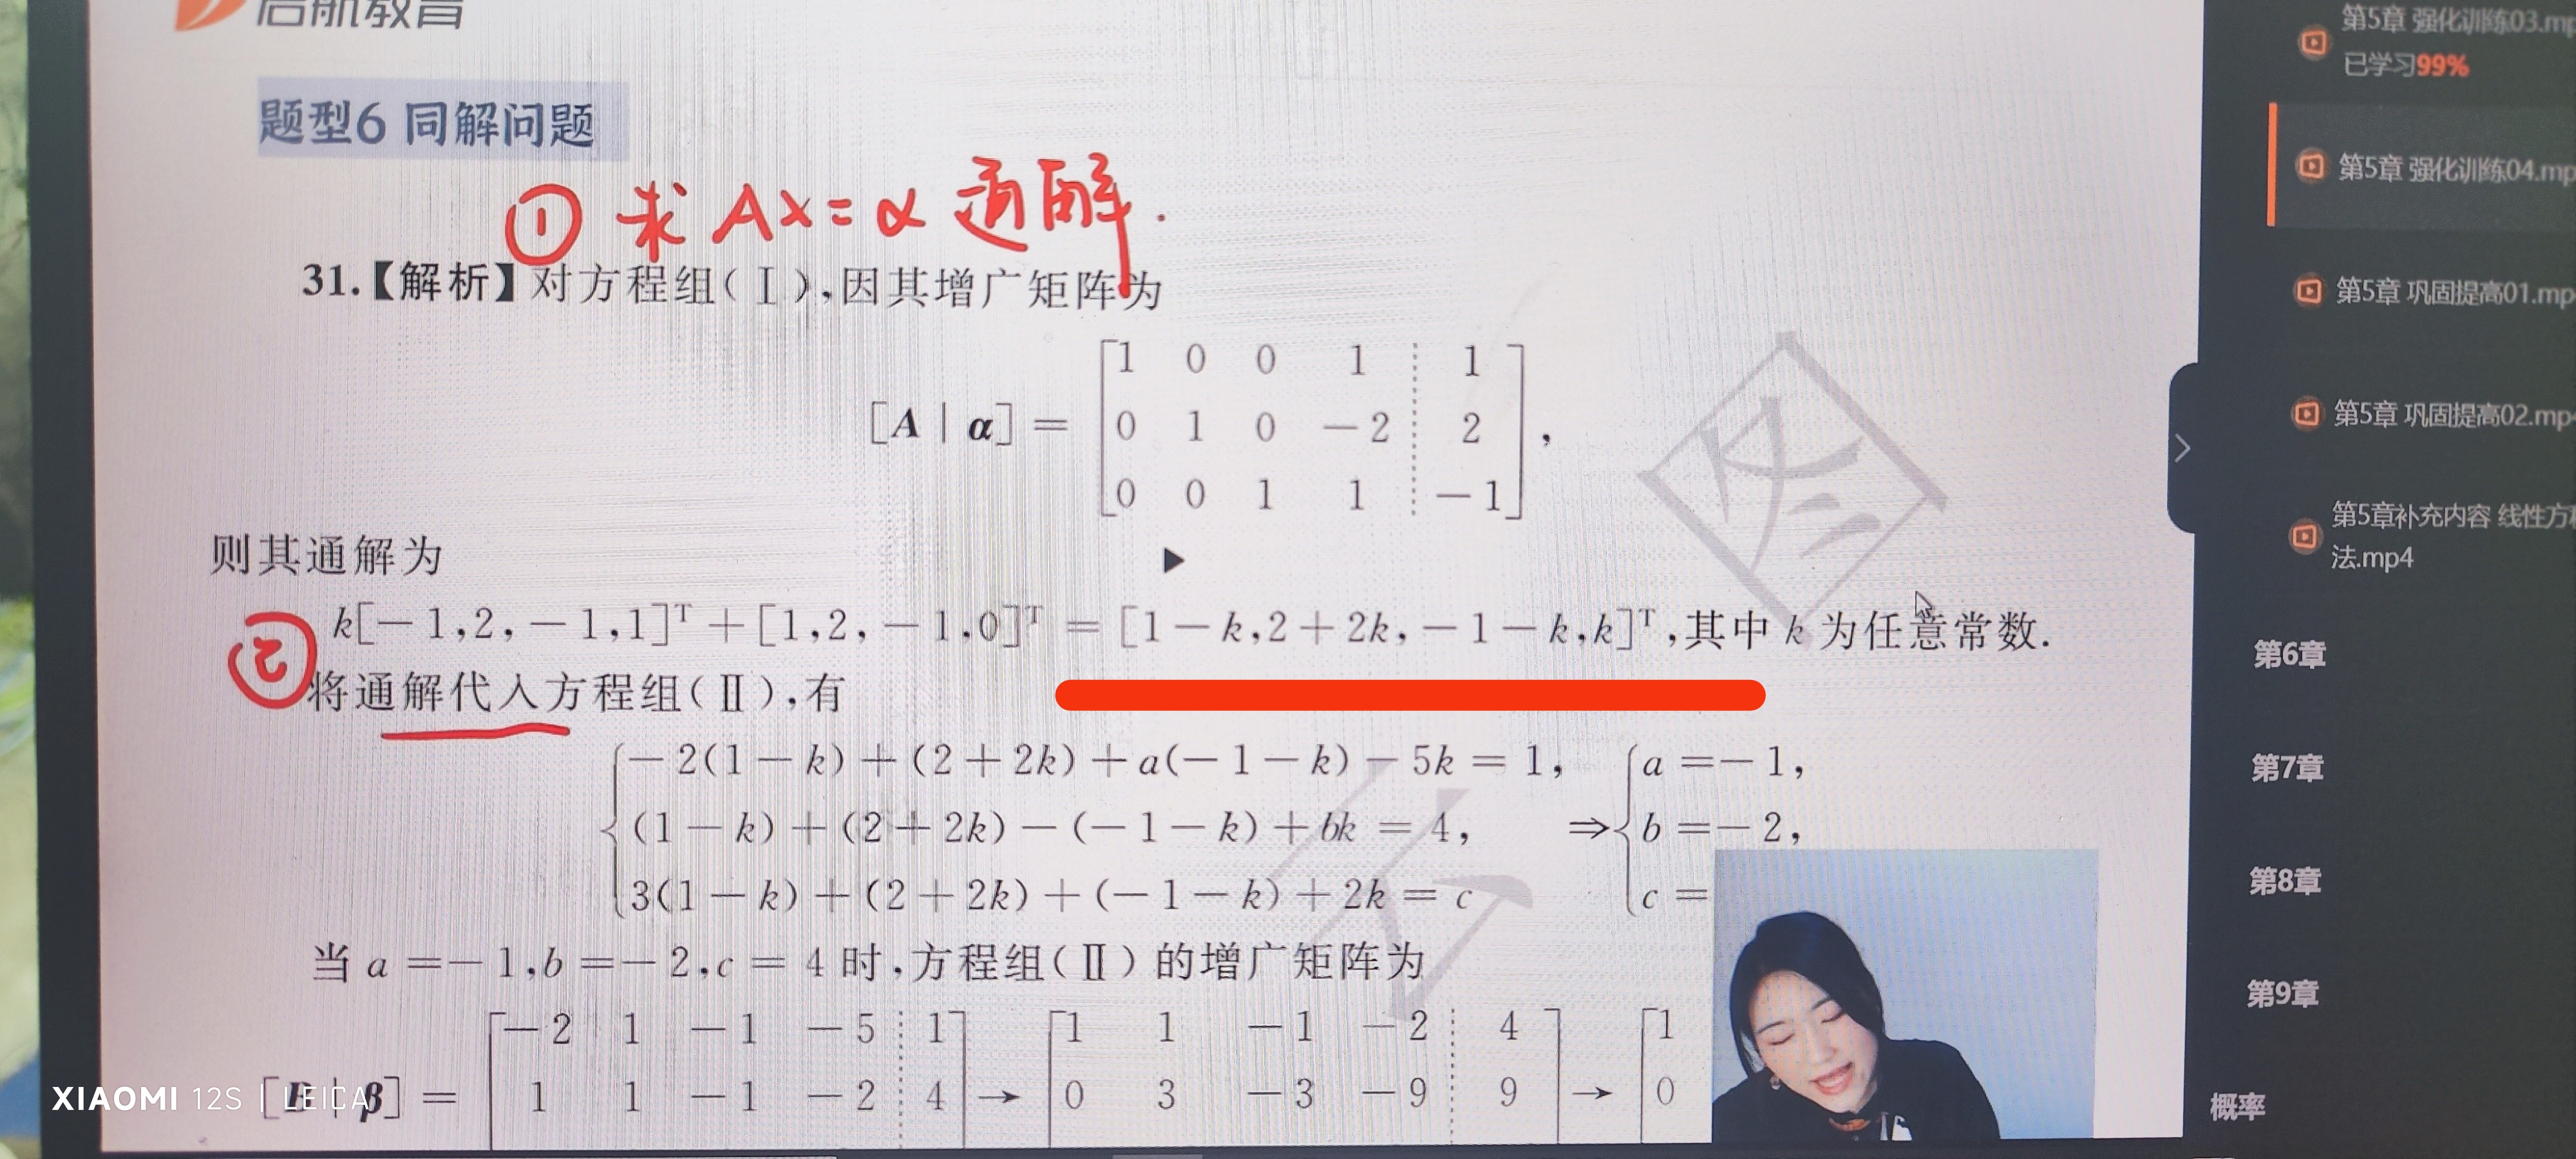 启航教育
题型6 同解问题
① 求 Ax=α 通解.
31.【解析】对方程组(Ⅰ),因其增广矩阵为
[A | α] = [1 0 0 1 ⋮ 1
0 1 0 -2 ⋮ 2
0 0 1 1 ⋮ -1],
则其通解为
k[-1,2,-1,1]ᵀ+[1,2,-1,0]ᵀ = [1-k,2+2k,-1-k,k]ᵀ,其中 k 为任意常数.
②
将通解代入方程组(Ⅱ),有
{-2(1-k)+(2+2k)+a(-1-k)-5k=1, ⇒ {a=-1,
(1-k)+(2+2k)-(-1-k)+bk=4, b=-2,
3(1-k)+(2+2k)+(-1-k)+2k=c c=
当 a=-1,b=-2,c=4 时,方程组(Ⅱ)的增广矩阵为
[B | β] = [-2 1 -1 -5 ⋮ 1] → [1 1 -1 -2 ⋮ 4] → [1
1 1 -1 -2 ⋮ 4 0 3 -3 -9 ⋮ 9 0
图
XIAOMI 12S | LEICA
第5章 强化训练03.mp
已学习99%
第5章 强化训练04.mp
第5章 巩固提高01.mp
第5章 巩固提高02.mp
第5章补充内容 线性方
法.mp4
第6章
第7章
第8章
第9章
概率